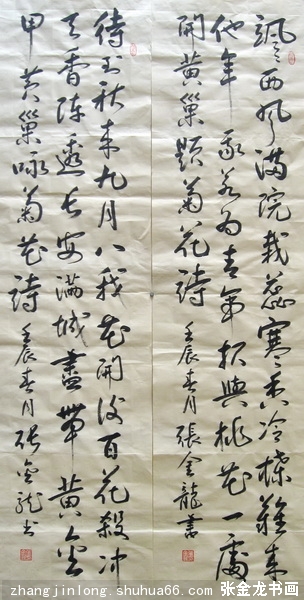 颯〻西风满院栽蕊寒香冷蝶難来
他年我若为青帝报與桃花一處
開黄巢题菊花詩 壬辰春月張金龍書
待到秋来九月八我花開後百花殺冲
天香阵透长安满城盡帶黄金
甲黄巢咏菊花詩 壬辰春月张金龙书
zhangjinlong.shuhua66.com 张金龙书画